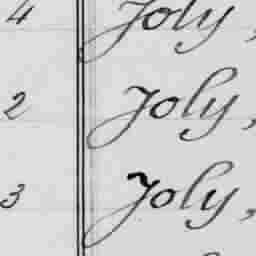 4 Joly,
2 Joly,
3 Joly,